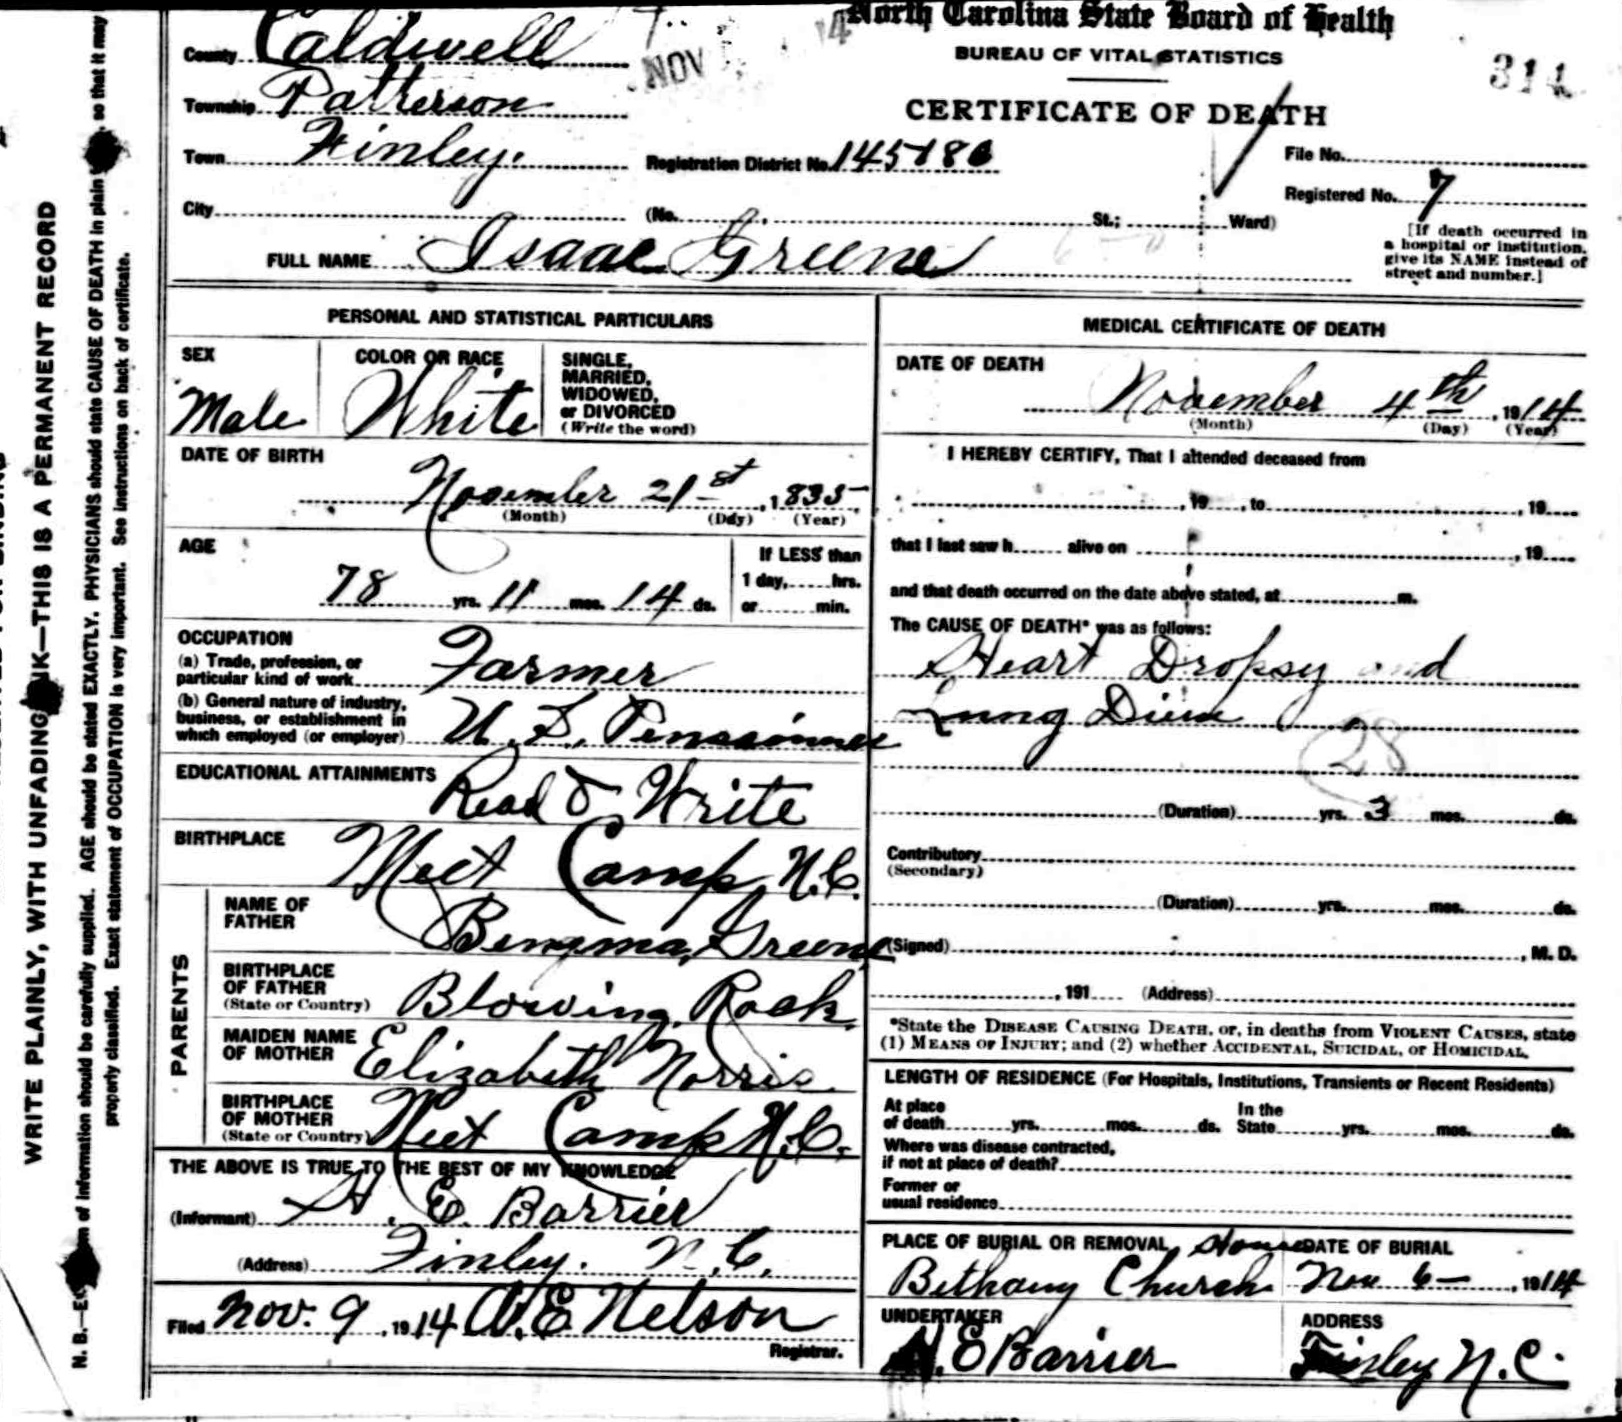 North Carolina State Board of Health
BUREAU OF VITAL STATISTICS
CERTIFICATE OF DEATH
314
NOV 14
County Caldwell
Township Patterson
Town Finley.
Registration District No. 145-186
File No.
Registered No. 7
City (No. St.; Ward)
[If death occurred in
a hospital or institution,
give its NAME instead of
street and number.]
FULL NAME Isaac Greene
PERSONAL AND STATISTICAL PARTICULARS
SEX
Male
COLOR OR RACE
White
SINGLE,
MARRIED,
WIDOWED,
or DIVORCED
(Write the word)
DATE OF BIRTH
November 21st, 1835
(Month) (Day) (Year)
AGE
78 yrs. 11 mos. 14 ds.
If LESS than
1 day, hrs.
or min.
OCCUPATION
(a) Trade, profession, or
particular kind of work Farmer
(b) General nature of industry,
business, or establishment in
which employed (or employer) U. S. Penssionner
EDUCATIONAL ATTAINMENTS
Read & Write
BIRTHPLACE
Meet Camp N.C.
PARENTS
NAME OF
FATHER
Benjma, Greene
BIRTHPLACE
OF FATHER
(State or Country) Blowing Rock.
MAIDEN NAME
OF MOTHER Elizabeth Norris.
BIRTHPLACE
OF MOTHER
(State or Country) Meet Camp N.C.
THE ABOVE IS TRUE TO THE BEST OF MY KNOWLEDGE
(Informant) H. E. Barrier
(Address) Finley. N.C.
Filed Nov. 9, 1914 A.E Nelson
Registrar.
MEDICAL CERTIFICATE OF DEATH
DATE OF DEATH
November 4th, 1914
(Month) (Day) (Year)
I HEREBY CERTIFY, That I attended deceased from
, 19 , to , 19
that I last saw h alive on , 19
and that death occurred on the date above stated, at m.
The CAUSE OF DEATH* was as follows:
Heart Dropsy and
Lung
28
(Duration) yrs. 3 mos. ds.
Contributory
(Secondary)
(Duration) yrs. mos. ds.
(Signed) , M. D.
, 191 (Address)
*State the DISEASE CAUSING DEATH, or, in deaths from VIOLENT CAUSES, state
(1) MEANS OF INJURY; and (2) whether ACCIDENTAL, SUICIDAL, or HOMICIDAL.
LENGTH OF RESIDENCE (For Hospitals, Institutions, Transients or Recent Residents)
At place
of death yrs. mos. ds.
In the
State yrs. mos. ds.
Where was disease contracted,
if not at place of death?
Former or
usual residence
PLACE OF BURIAL OR REMOVAL
Bethany Church
DATE OF BURIAL
Nov 6- , 1914
UNDERTAKER
H. E Barrier
ADDRESS
Finley N.C.
WRITE PLAINLY, WITH UNFADING INK—THIS IS A PERMANENT RECORD
of information should be carefully supplied. AGE should be stated EXACTLY. PHYSICIANS should state CAUSE OF DEATH in plain , so that it may
properly classified. Exact statement of OCCUPATION is very important. See instructions on back of certificate.
N. B.—